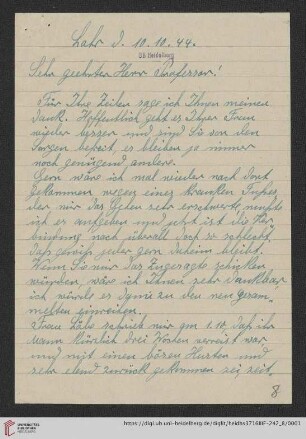 Lahr d. 10.10.44.
UB Heidelberg
Sehr geehrter Herr Professor!
Für Ihre Zeilen sage ich Ihnen meinen
Dank. Hoffentlich geht es Ihrer Frau
wieder besser und sind Sie von den
Sorgen befreit, es bleiben ja immer
noch genügend andere.
Gern wäre ich mal wieder nach dort
gekommen wegen eines kranken Fußes,
der mir das Gehen sehr erschwerte, mußte
ich es aufgeben und jetzt ist die Ver-
bindung nach überall doch so schlecht,
daß gewiß jeder gern daheim bleibt.
Wenn Sie mir das Zugesagte schicken
würden, wäre ich Ihnen sehr dankbar
ich würde es zu den neu gesam-
melten einreihen.
Frau schrieb mir am 1.10, daß ihr
Mann kürzlich drei Wochen verreist war
und mit einen bösen Husten und
sehr elend zurück gekommen sei, seit
8
UNIVERSITÄTS-
BIBLIOTHEK
HEIDELBERG
https://digi.ub.uni-heidelberg.de/diglit/heidhs3716IIIF-242_8/0001